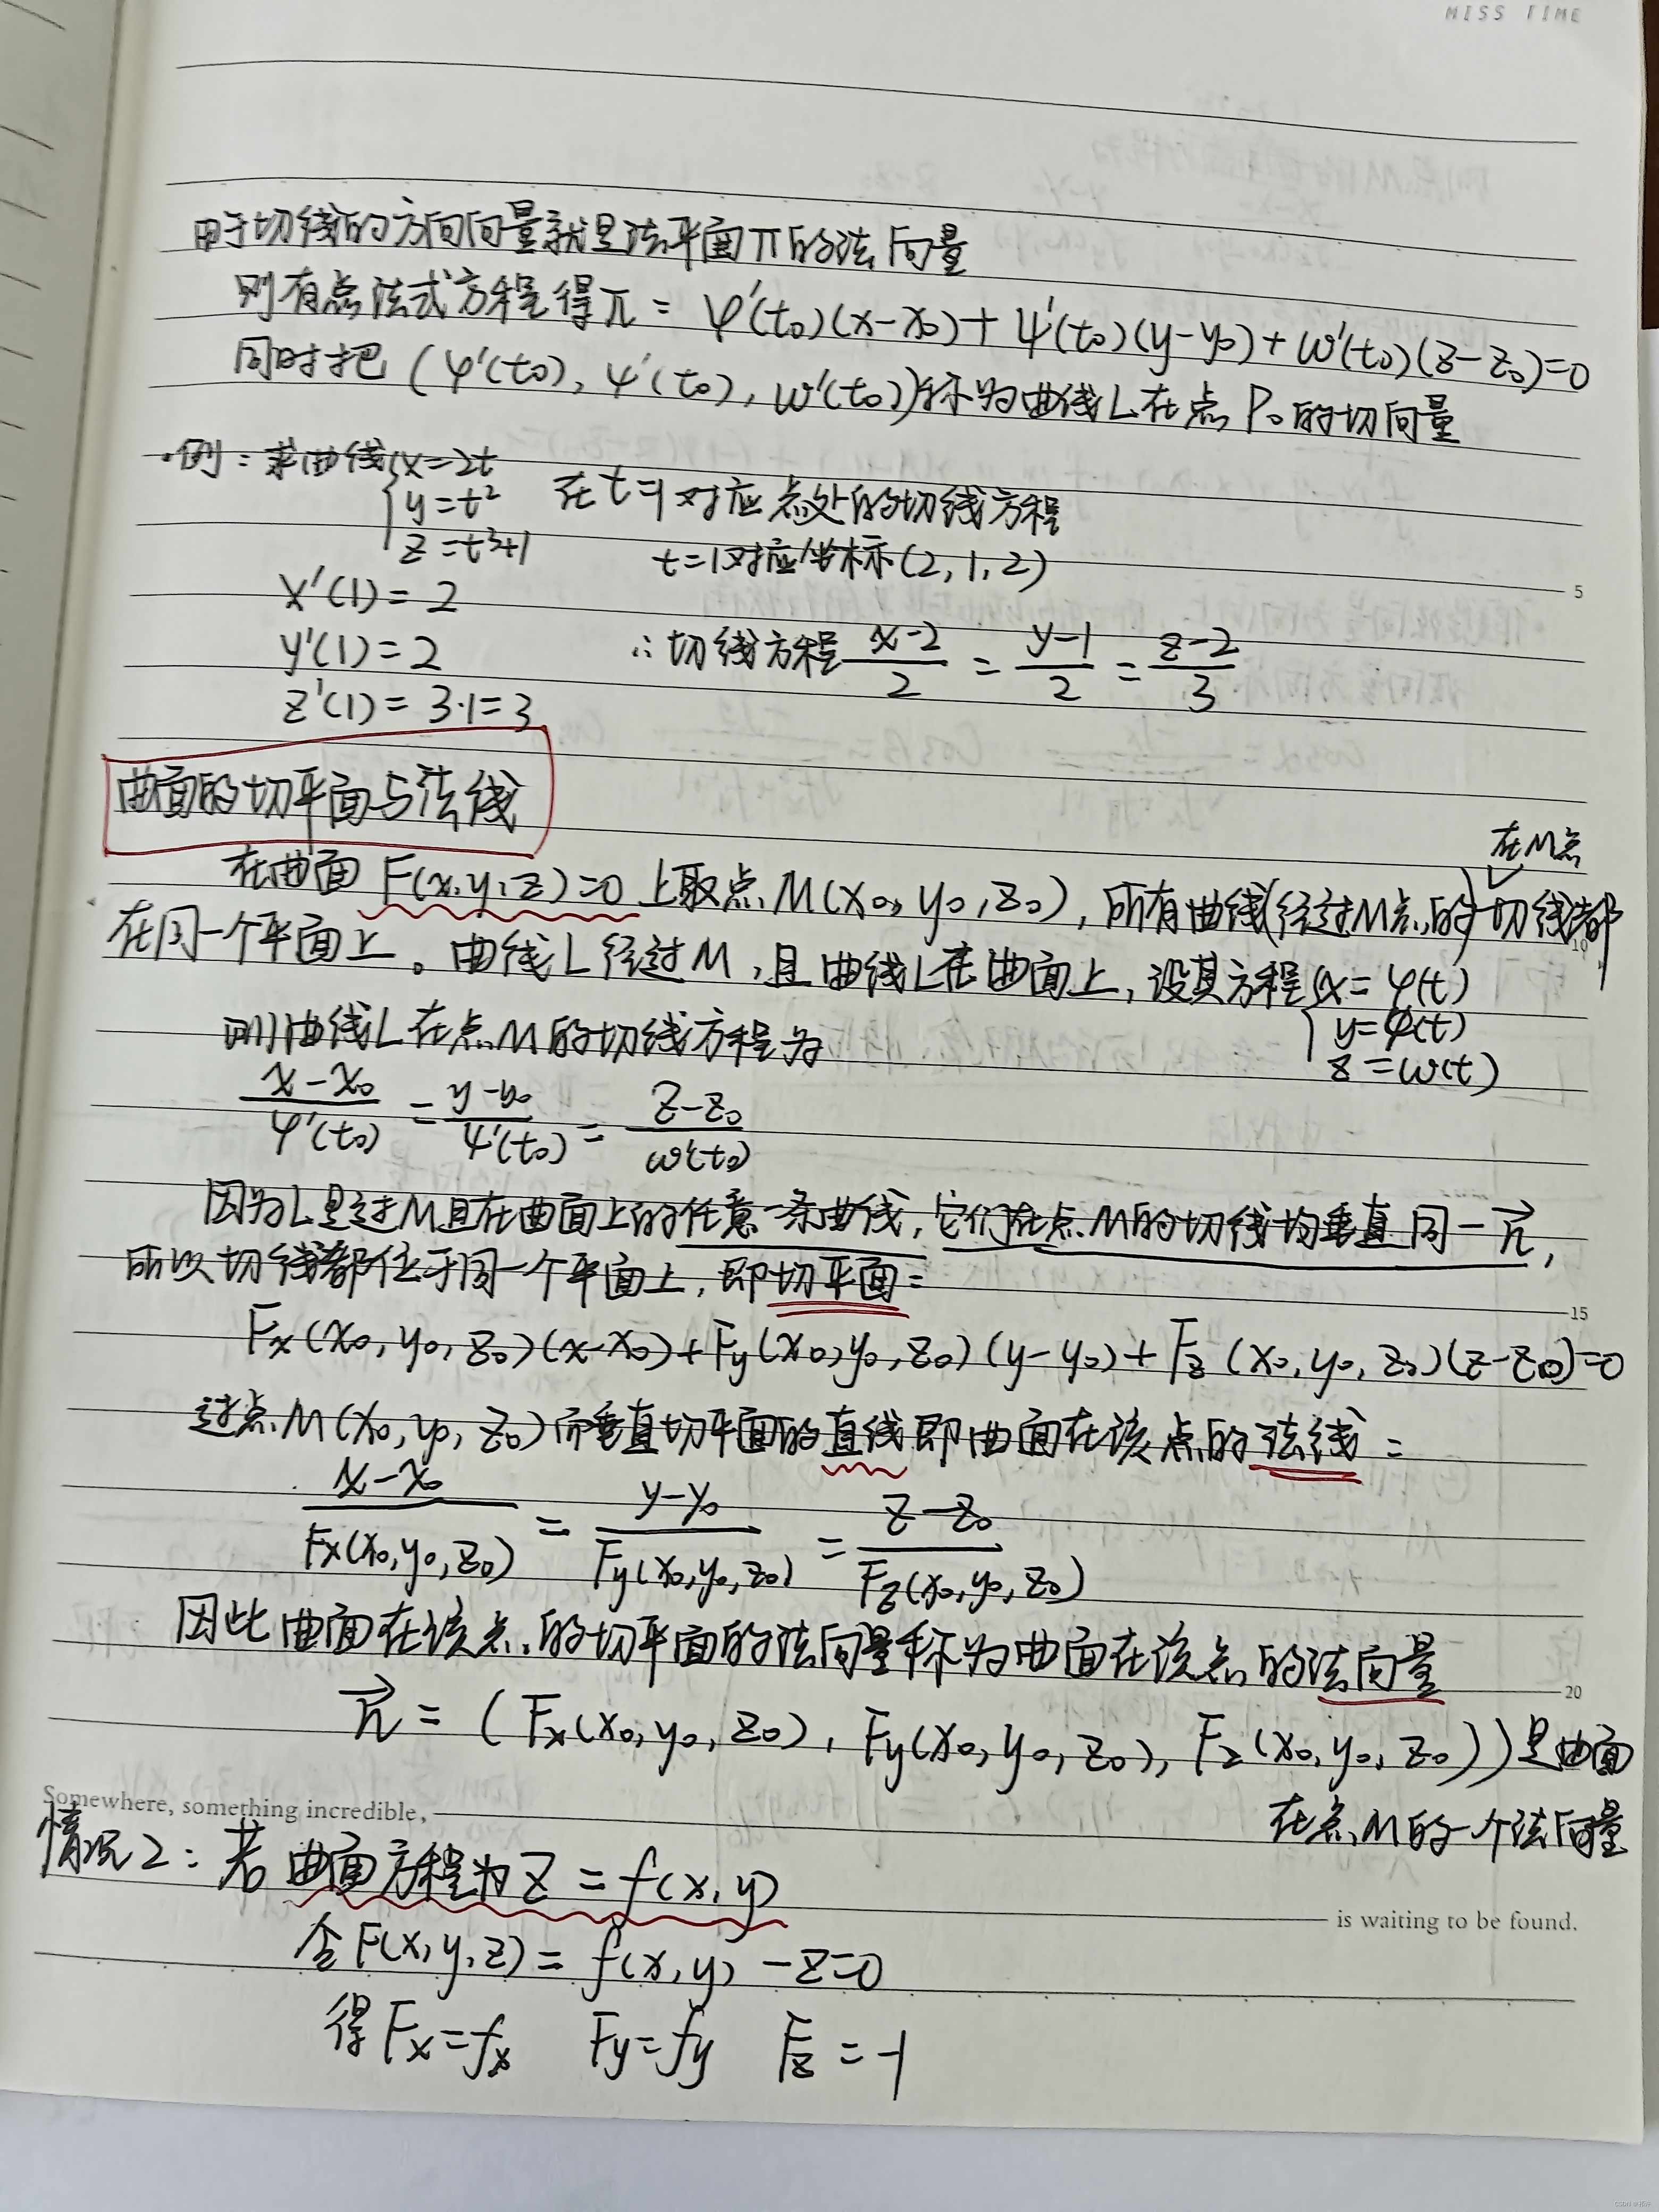 MISS TIME
由于切线的方向向量就是法平面π的法向量
则有点法式方程得π: φ'(t₀)(x-x₀)+ψ'(t₀)(y-y₀)+ω'(t₀)(z-z₀)=0
同时把(φ'(t₀), ψ'(t₀), ω'(t₀))称为曲线L在点P₀的切向量
·例:求曲线{x=2t
y=t² 在t=1对应点处的切线方程
z=t³+1 t=1对应坐标(2,1,2)
5
x'(1)=2
y'(1)=2 ∴切线方程 (x-2)/2 = (y-1)/2 = (z-2)/3
z'(1)=3·1=3
曲面的切平面与法线
在M点
在曲面F(x,y,z)=0上取点M(x₀,y₀,z₀),所有曲线(经过M点的)切线都
10
在同一个平面上。曲线L经过M,且曲线L在曲面上,设其方程{x=φ(t)
y=ψ(t)
z=ω(t)
则曲线L在点M的切线方程为
(x-x₀)/φ'(t₀) = (y-y₀)/ψ'(t₀) = (z-z₀)/ω'(t₀)
因为L是过M且在曲面上的任意一条曲线,它们在点M的切线均垂直同一n⃗,
所以切线都位于同一个平面上,即切平面:
15
Fx(x₀,y₀,z₀)(x-x₀)+Fy(x₀,y₀,z₀)(y-y₀)+Fz(x₀,y₀,z₀)(z-z₀)=0
过点M(x₀,y₀,z₀)而垂直切平面的直线即曲面在该点的法线:
(x-x₀)/Fx(x₀,y₀,z₀) = (y-y₀)/Fy(x₀,y₀,z₀) = (z-z₀)/Fz(x₀,y₀,z₀)
因此曲面在该点的切平面的法向量称为曲面在该点的法向量
20
n⃗=(Fx(x₀,y₀,z₀), Fy(x₀,y₀,z₀), Fz(x₀,y₀,z₀))是曲面
在点M的一个法向量
Somewhere, something incredible,
情况2:若曲面方程为z=f(x,y)
is waiting to be found.
令F(x,y,z)=f(x,y)-z=0
得Fx=fx Fy=fy Fz=-1